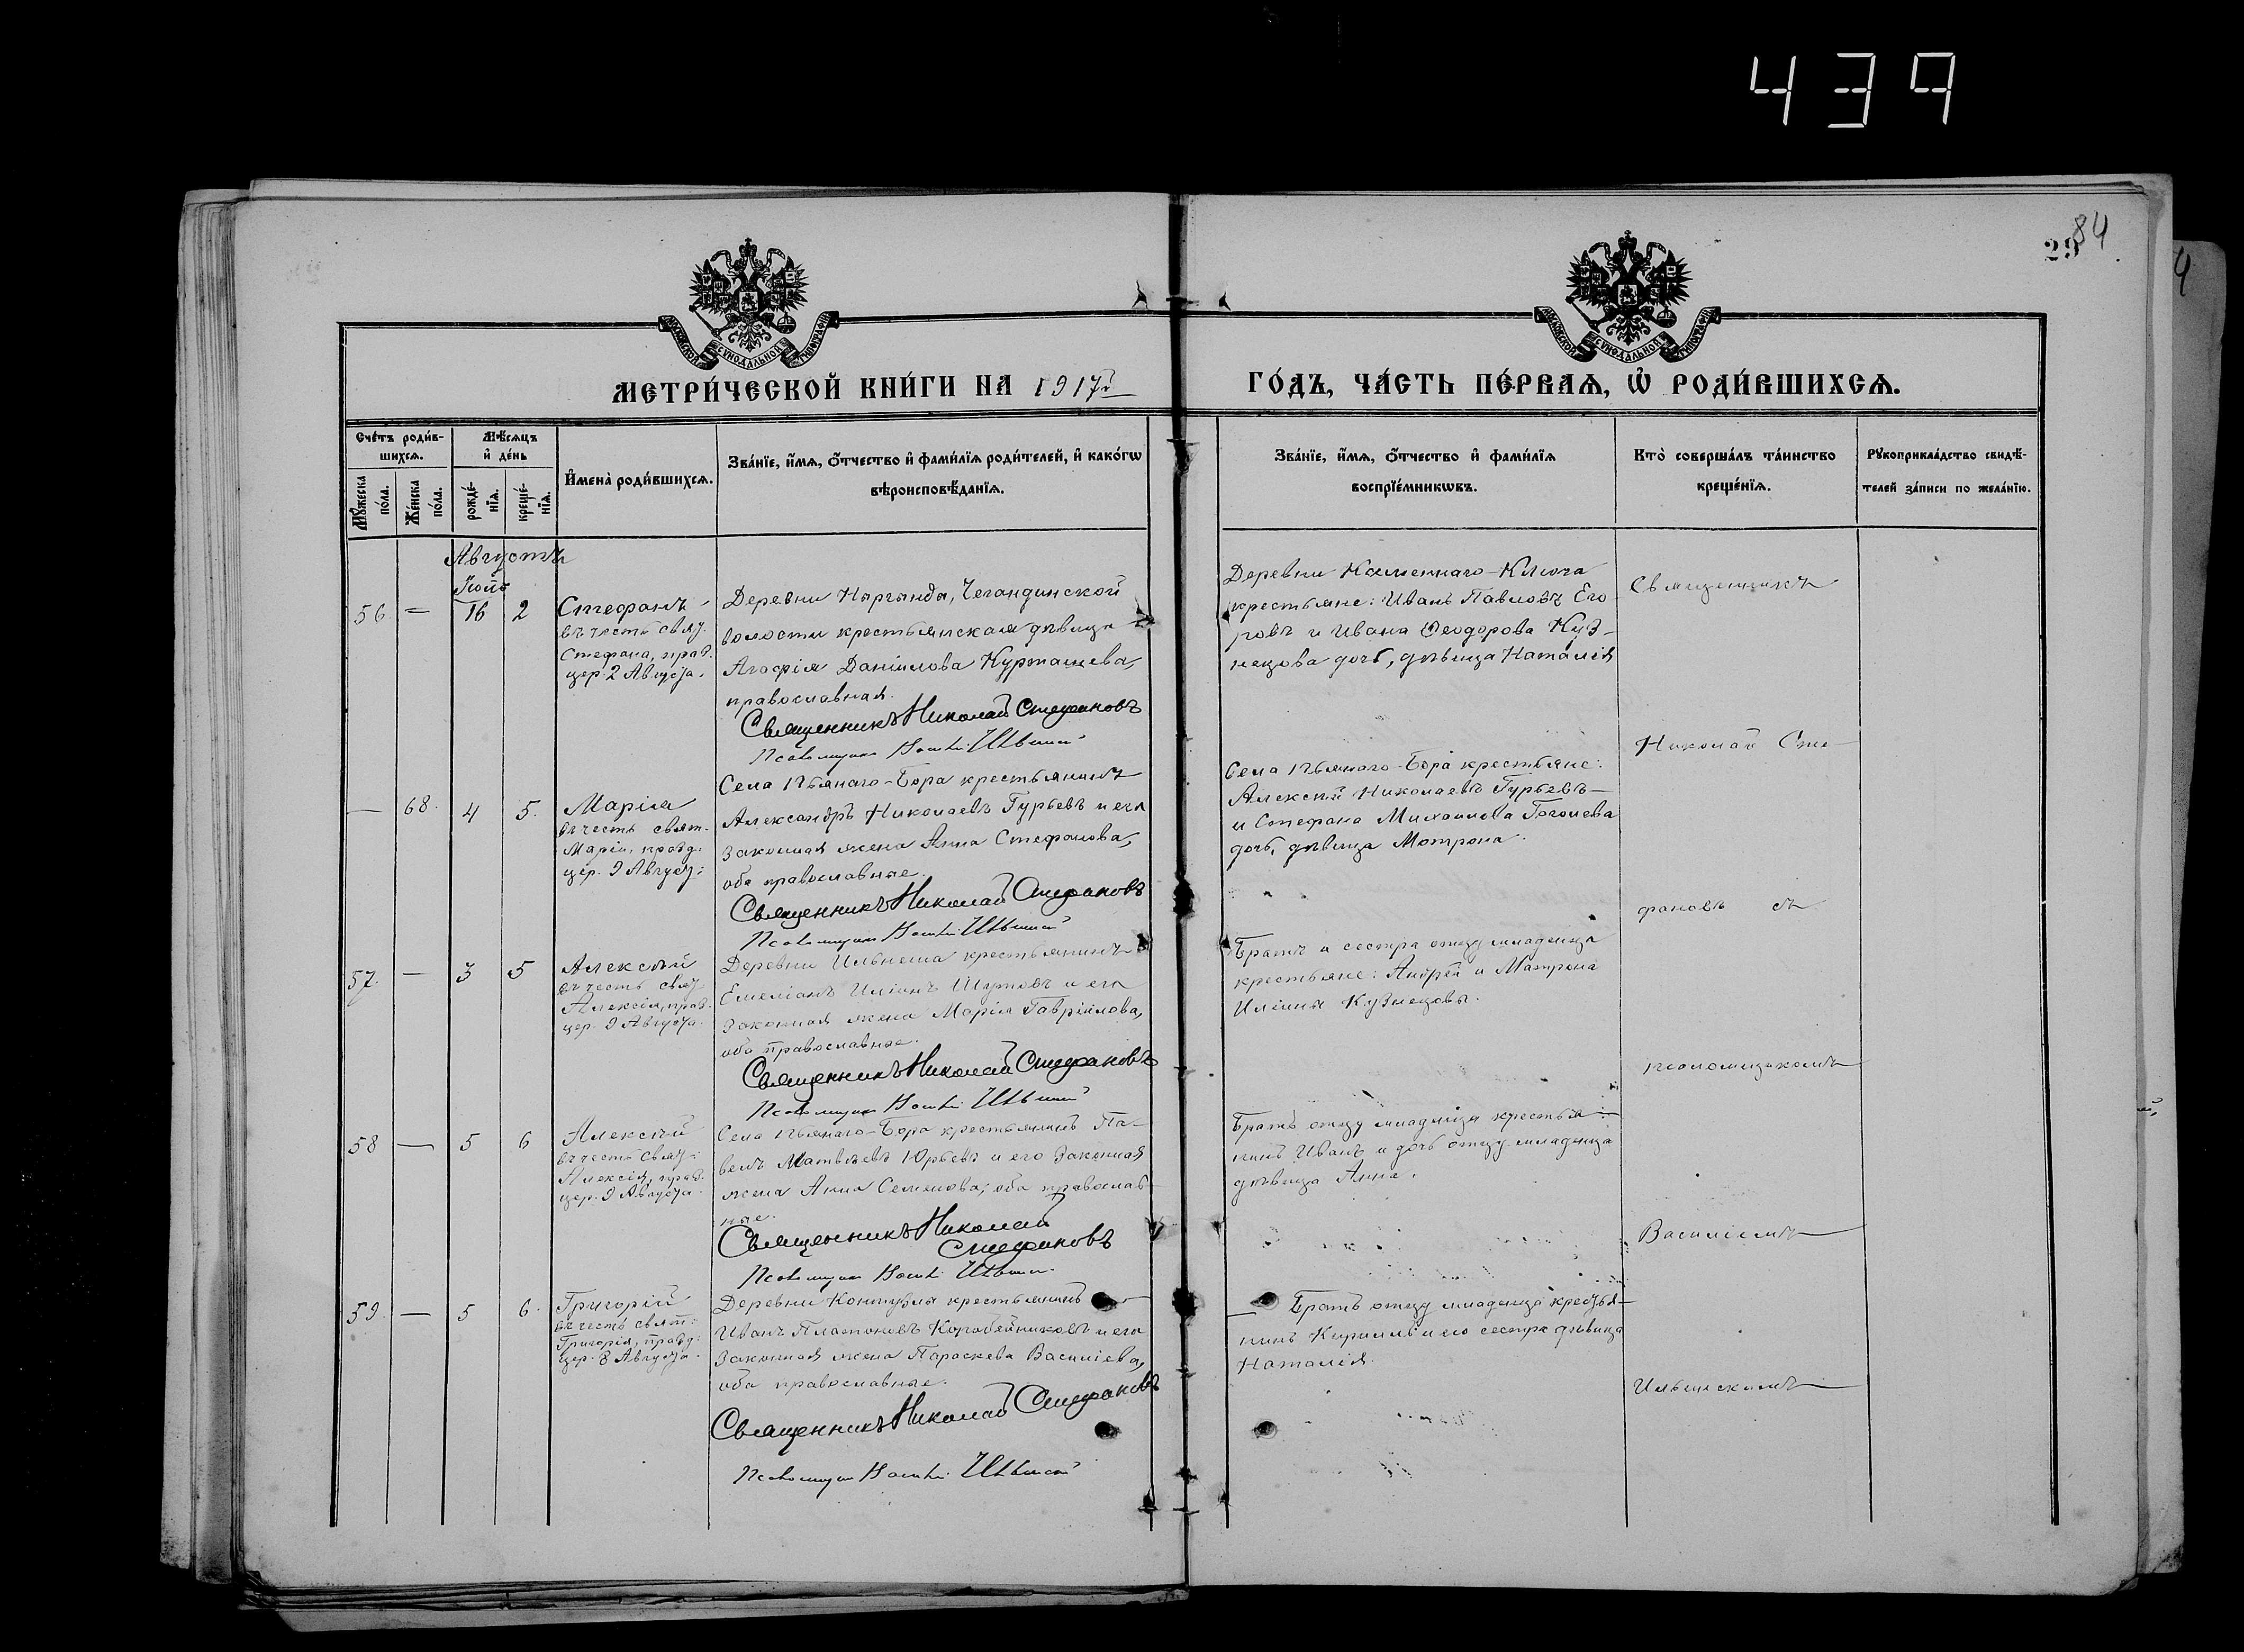 439
84
29
МОСКОВСКОЙ СѴНОДАЛЬНОЙ ТИПОГРАФІИ
МОСКОВСКОЙ СѴНОДАЛЬНОЙ ТИПОГРАФІИ
МЕТРИ́ЧЕСКОЙ КНИ́ГИ НА 1917й
ГО́ДЪ, ЧА́СТЬ ПЕ́РВАѦ, Ѽ РОДИ́ВШИХСѦ.
Сче́тъ роди́в-
шихсѧ.
Мѣ́сѧцъ
и҆ де́нь
Мꙋ́жеска по́ла.
Же́нска по́ла.
рожде́-
нїѧ.
креще́-
нїѧ.
И҆мена̀ роди́вшихсѧ.
Зва́нїе, и҆́мѧ, ѻ҆́тчество и҆ фами́лїѧ роди́телей, и҆ како́гѡ
вѣроисповѣ́данїѧ.
Зва́нїе, и҆́мѧ, ѻ҆́тчество и҆ фами́лїѧ
воспрїе́мникѡвъ.
Кто̀ соверша́лъ та́инство
креще́нїѧ.
Рꙋкоприкла́дство свидѣ́-
телей за́писи по жела́нїю.
Августъ
Іюль
56. — 16 2
Стефанъ
въ честь свят.
Стефана, празд.
цер. 2 Августа.
Деревни Ныргында, Чегандинской
волости крестьянская дѣвица
Агафія Даніилова Курташева,
православная.
Священникъ Николай Стефановъ
Псаломщикъ
Деревни Каменнаго-Ключа
крестьяне: Иванъ Павловъ Его-
ровъ и Ивана Ѳеодорова Куз-
нецова дочь, дѣвица Наталія
Священникъ
Николай Сте-
фановъ съ
псаломщикомъ
Василіемъ
Ильинскимъ
— 68. 4 5.
Марія
въ честь свят.
Маріи, празд.
цер. 9 Августа:
Села Пьянаго-Бора крестьянинъ
Александръ Николаевъ Гурьевъ и его
законная жена Анна Стефанова,
оба православные.
Священникъ Николай Стефановъ
Псаломщикъ
Села Пьянаго-Бора крестьяне:
Алексѣй Николаевъ Гурьевъ
и Стефана Михаилова Гоголева
дочь, дѣвица Матрона.
57. — 3 5
Алексѣй
въ честь свят.
Алексія, празд.
цер. 9 Августа.
Деревни Ильнеша крестьянинъ
Емеліанъ Иліинъ Шутовъ и его
законная жена Марія Гавріилова,
оба православные.
Священникъ Николай Стефановъ
Псаломщикъ
Братъ и сестра отцу младенца
крестьяне: Андрей и Матрона
Иліины Кузнецовы.
58 — 5 6
Алексѣй
въ честь свят:
Алексія, празд.
цер. 9 Августа.
Села Пьянаго-Бора крестьянинъ Па-
велъ Матвѣевъ Юрьевъ и его законная
жена Анна Семенова, оба православ-
ные.
Священникъ Николай
Стефановъ
Псаломщикъ
Братъ отцу младенца крестья-
нинъ Иванъ и дочь отцу младенца
дѣвица Анна.
59. — 5 6.
Григорій
въ честь свят:
Григорія, празд:
цер. 8 Августа.
Деревни Контузла крестьянинъ
Иванъ Платоновъ Коробейниковъ и его
законная жена Параскева Василіева,
оба православные.
Священникъ Николай Стефановъ
Псаломщикъ
Братъ отцу младенца крестья-
нинъ Кириллъ и его сестра дѣвица
Наталія.